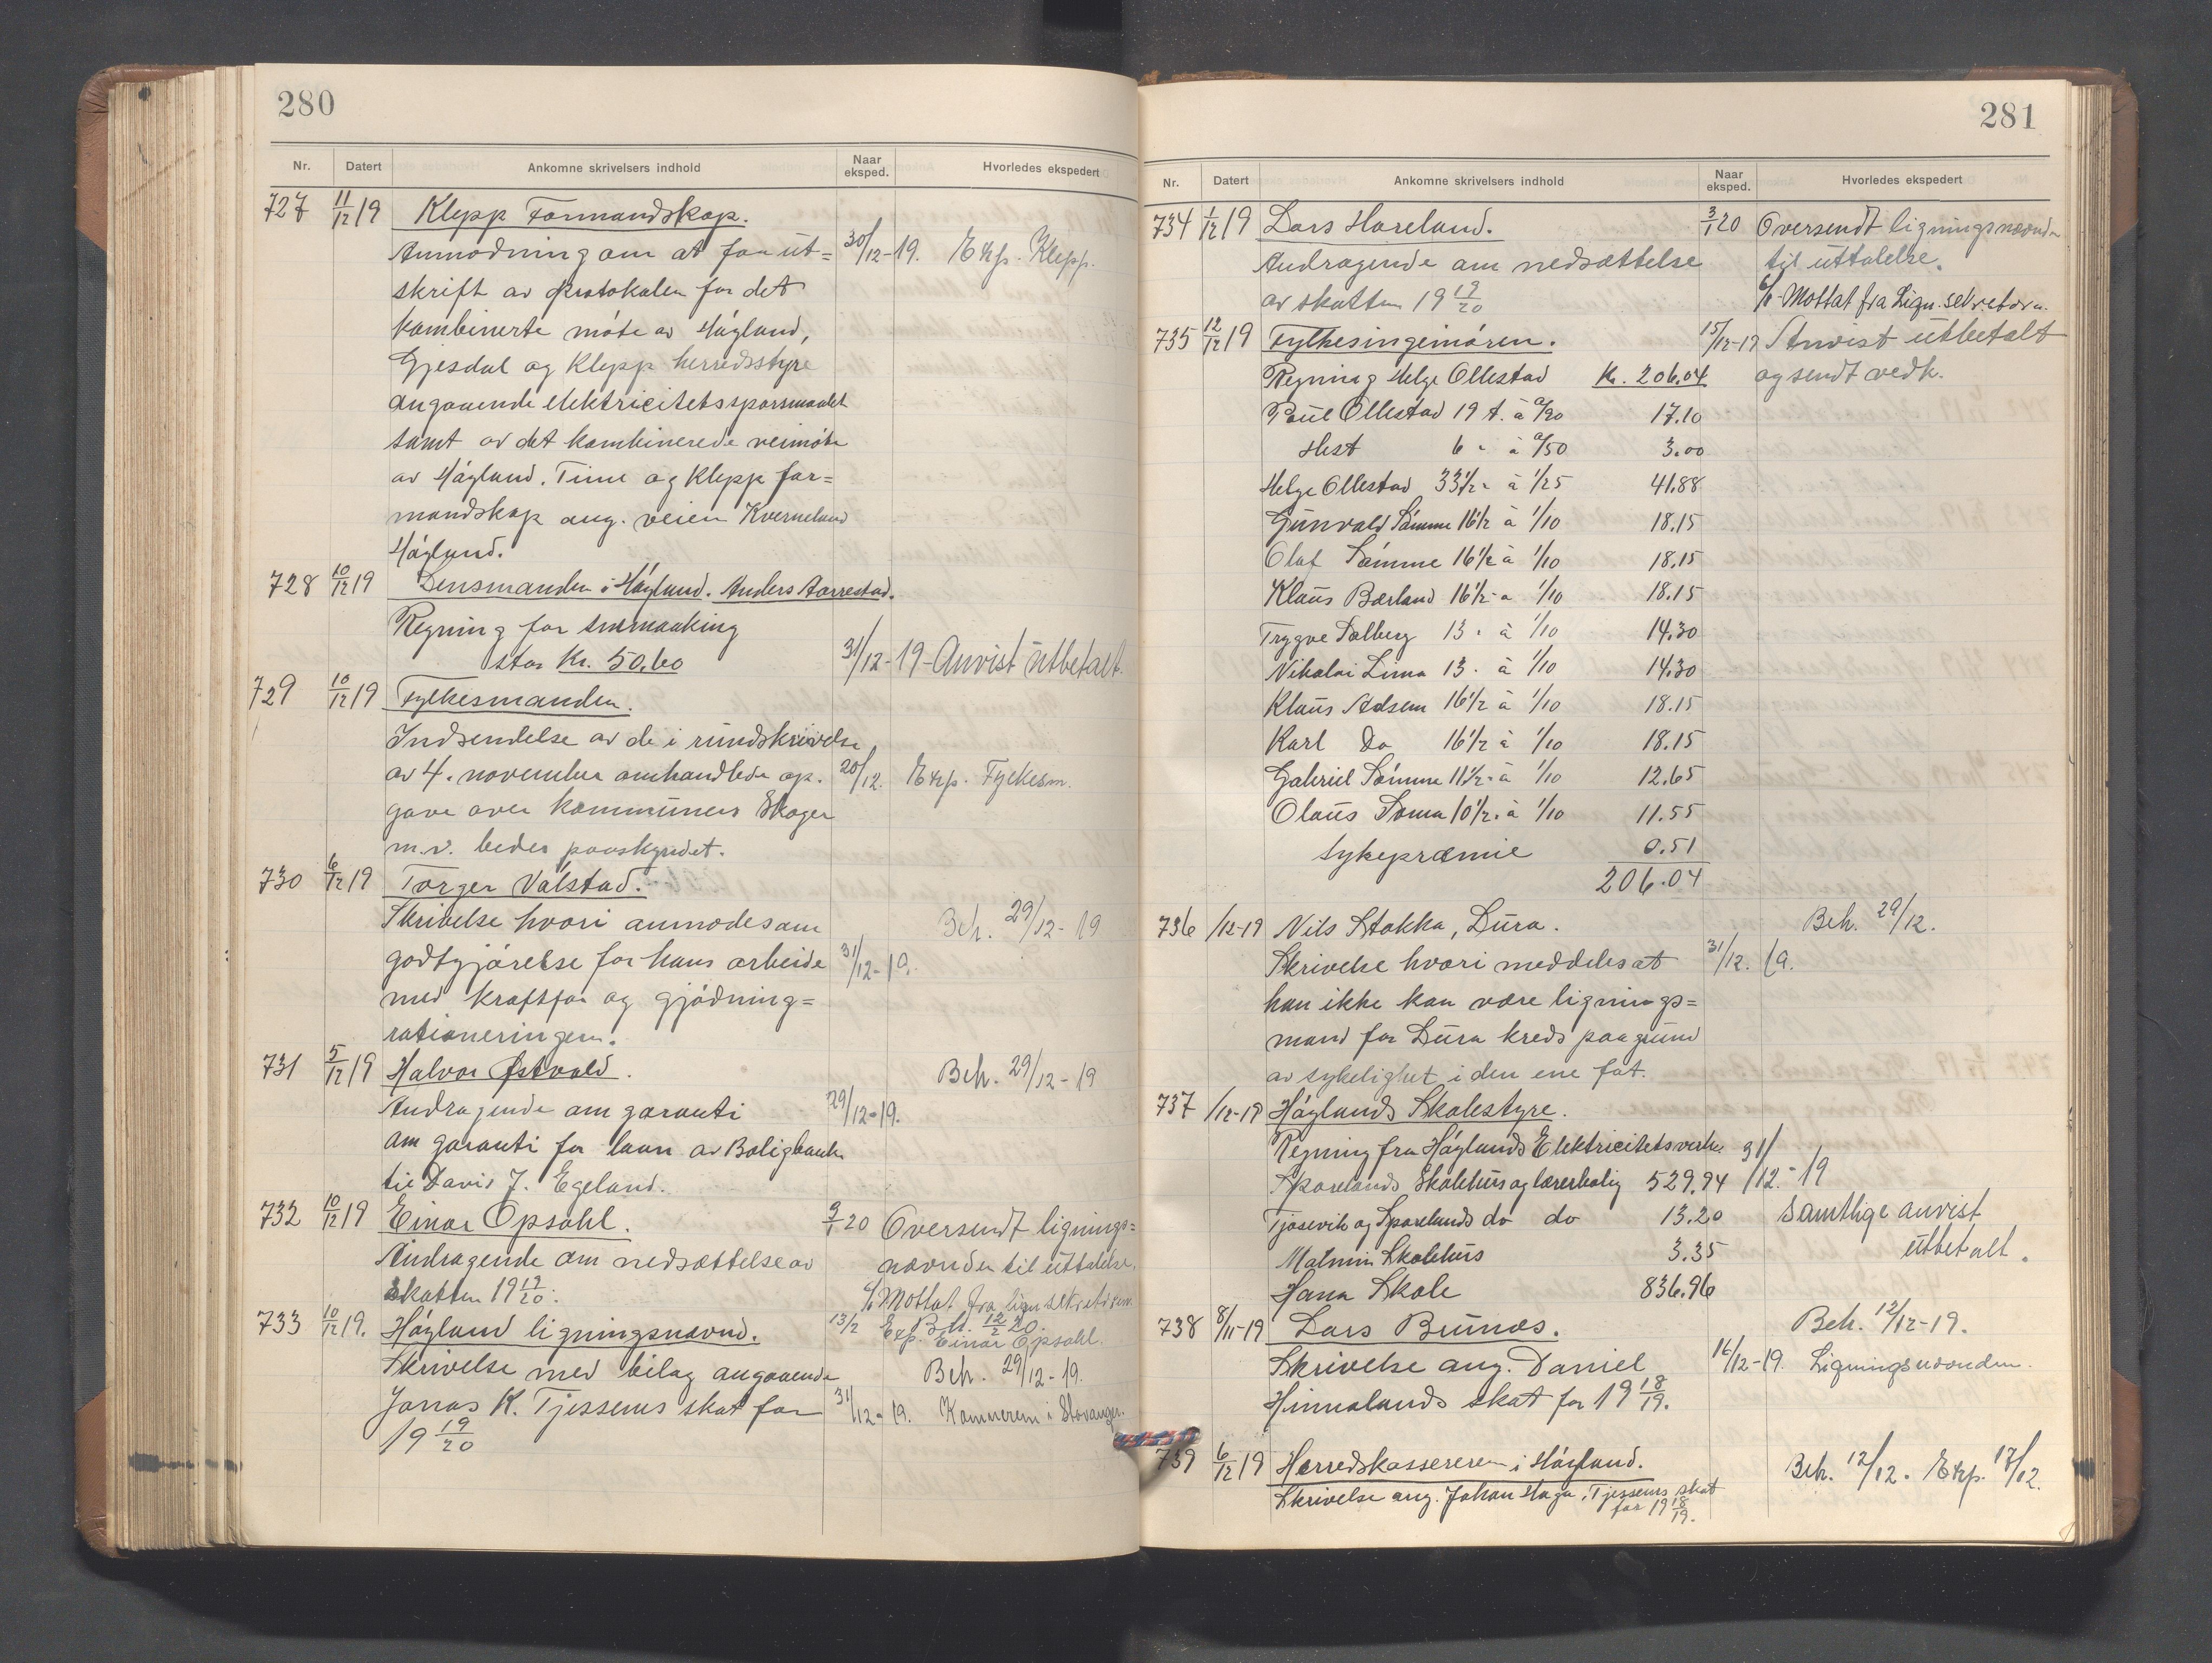 280
Nr. Datert Ankomne skrivelsers indhold Naar eksped. Hvorledes ekspedert
727 11/12 19 Klepp Formandskap.
Anmodning om at faa ut= 30/12-19. Eksp. Klepp.
skrift av protokolen for det
kombinerte møte av Høyland,
Gjesdal og Klepp herredsstyre
angaaende elektricitetsspørsmaalet
samt av det kombinerede veimøte
av Høyland, Time og Klepp for=
mandskap ang. veien Kverneland
Høyland.
728 10/12 19 Lensmanden i Høyland. Anders Aarrestad.
Regning for snemaaking
stor Kr. 50,60 31/12-19- Anvist utbetalt.
729 10/12 19 Fylkesmanden.
Indsendelse av de i rundskrivelse
av 4. november omhandlede op. 20/12. Eksp. Fylkesm.
gave over kommunens Skoger
m.v. bedes paaskyndet.
730 6/12 19 Torger Válstad.
Skrivelse hvori anmodes om Beh. 29/12-19
godtgjørelse for hans arbeide 31/12-19.
med kraftfor og gjødning=
rationeringen.
731 5/12 19 Halvor Østvold. Beh. 29/12-19
Andragende om garanti 29/12-19.
om garanti for laan av Boligbank
til David J. Egeland.
732 10/12 19 Einar Opsahl. 3/1 20 Oversendt lignings=
Andragende om nedsættelse av nævnden til uttalelse.
skatten 19 19/20. Mottat fra lign sekretæren.
733 10/12 19. Høyland ligningsnævnd. 13/2 Beh. 12/2 20. Exp. Einar Opsahl.
Skrivelse med bilag angaaende Beh. 29/12-19.
Jonas K. Tjessems skat for 31/12-19. Kæmneren i Stavanger.
19 19/20
281
Nr. Datert Ankomne skrivelsers indhold Naar eksped. Hvorledes ekspedert
734 1/12 19 Lars Hareland. 3/1 20 Oversendt ligningsnævnden
Andragende om nedsættelse til uttalelse.
av skatten 19 19/20 6/1-Mottat fra Lign. sekretæren.
735 12/12 19 Fylkesingeniøren. 15/12-19 Anvist utbetalt
Regning Helge Ollestad Kr. 206.04 og sendt vedk.
Paul Ollestad 19 t. à 0/90 17.10
Hest 6 " à 0/50 3.00
Helge Ollestad 33 1/2 " à 1/25 41.88
Gunvald Sømme 16 1/2 à 1/10 18.15
Olaf Sømme 16 1/2 à 1/10 18.15
Klaus Bærland 16 1/2 " a 1/10 18.15
Trygve Salberg 13 " à 1/10 14.30
Nikolai Lima 13 " à 1/10 14.30
Klaus Adsem 16 1/2 à 1/10 18.15
Karl Do 16 1/2 à 1/10 18.15
Gabriel Sømme 11 1/2 " à 1/10 12.65
Olaus Soma 10 1/2 " à 1/10 11.55
Sykepræmie 0.51
206.04
736 /12-19 Nils Stokka, Lura. Beh. 29/12.
Skrivelse hvori meddeles at 31/12. 19.
han ikke kan være lignings=
mand for Lura kreds paa grund
av sykelighet i den ene fot.
737 /12-19 Høylands Skolestyre.
Regning fra Høylands Elektricitetsverk 31/12-19
Sporelands Skolehus og lærerbolig 529.94
Tjosevik og Sporelands do do 13.20 Samtlige anvist
Malmin Skolehus 3.35 utbetalt.
Hana Skole 836.96
738 8/11-19 Lars Brunæs. Beh. 12/12-19.
Skrivelse ang. Daniel 16/12-19. Ligningsnævnden.
Hinnalands skat for 19 18/19.
739 6/12 19 Herredskassereren i Høyland. Beh. 12/12. Eksp. 17/12.
Skrivelse ang. Johan Haga, Tjessems skat
for 19 18/19.